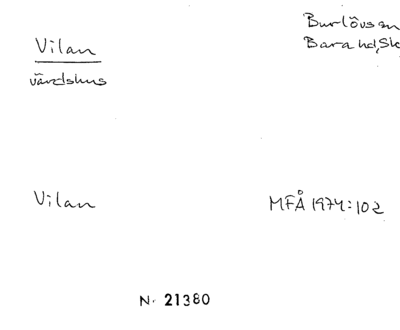 Vilan
värdshus
Burlövs sn
Bara hd, Sk
Vilan
MFÅ 1974:102
N. 21380